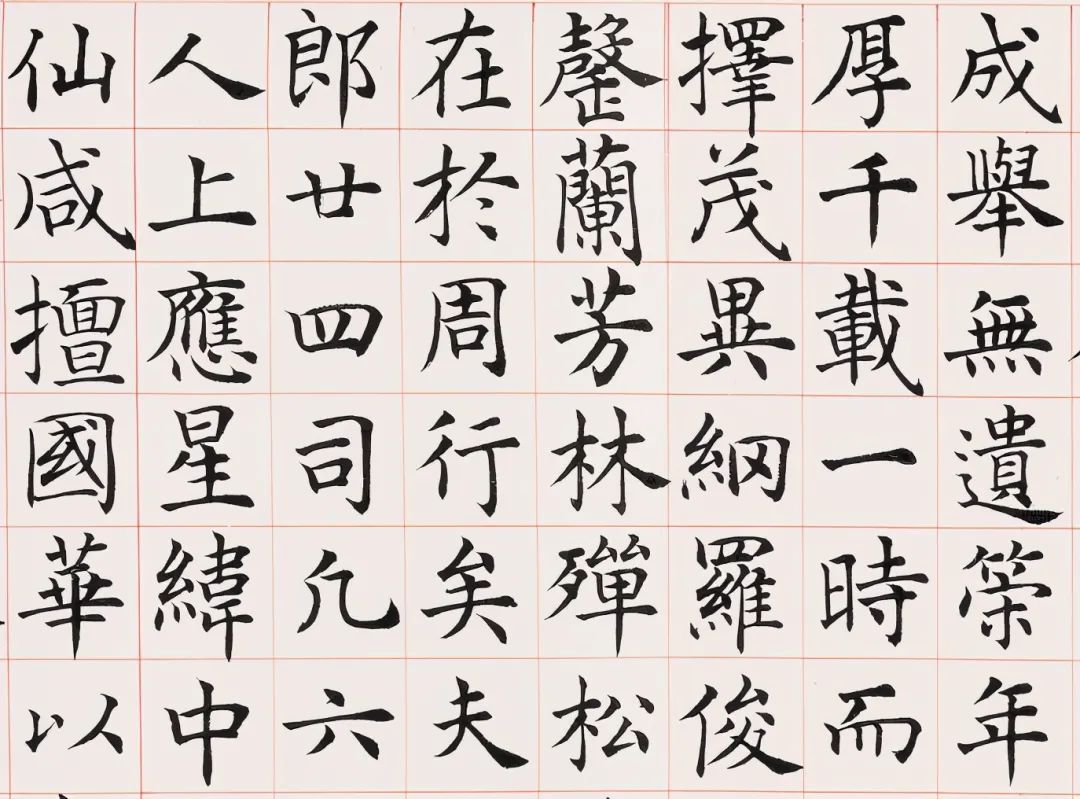 成舉無遺筞年
厚千載一時而
擇茂異䋄羅俊
罄蘭芳林殫松
在於周行矣夫
郎廿四司凢六
人上應星緯中
仙咸擅國華以